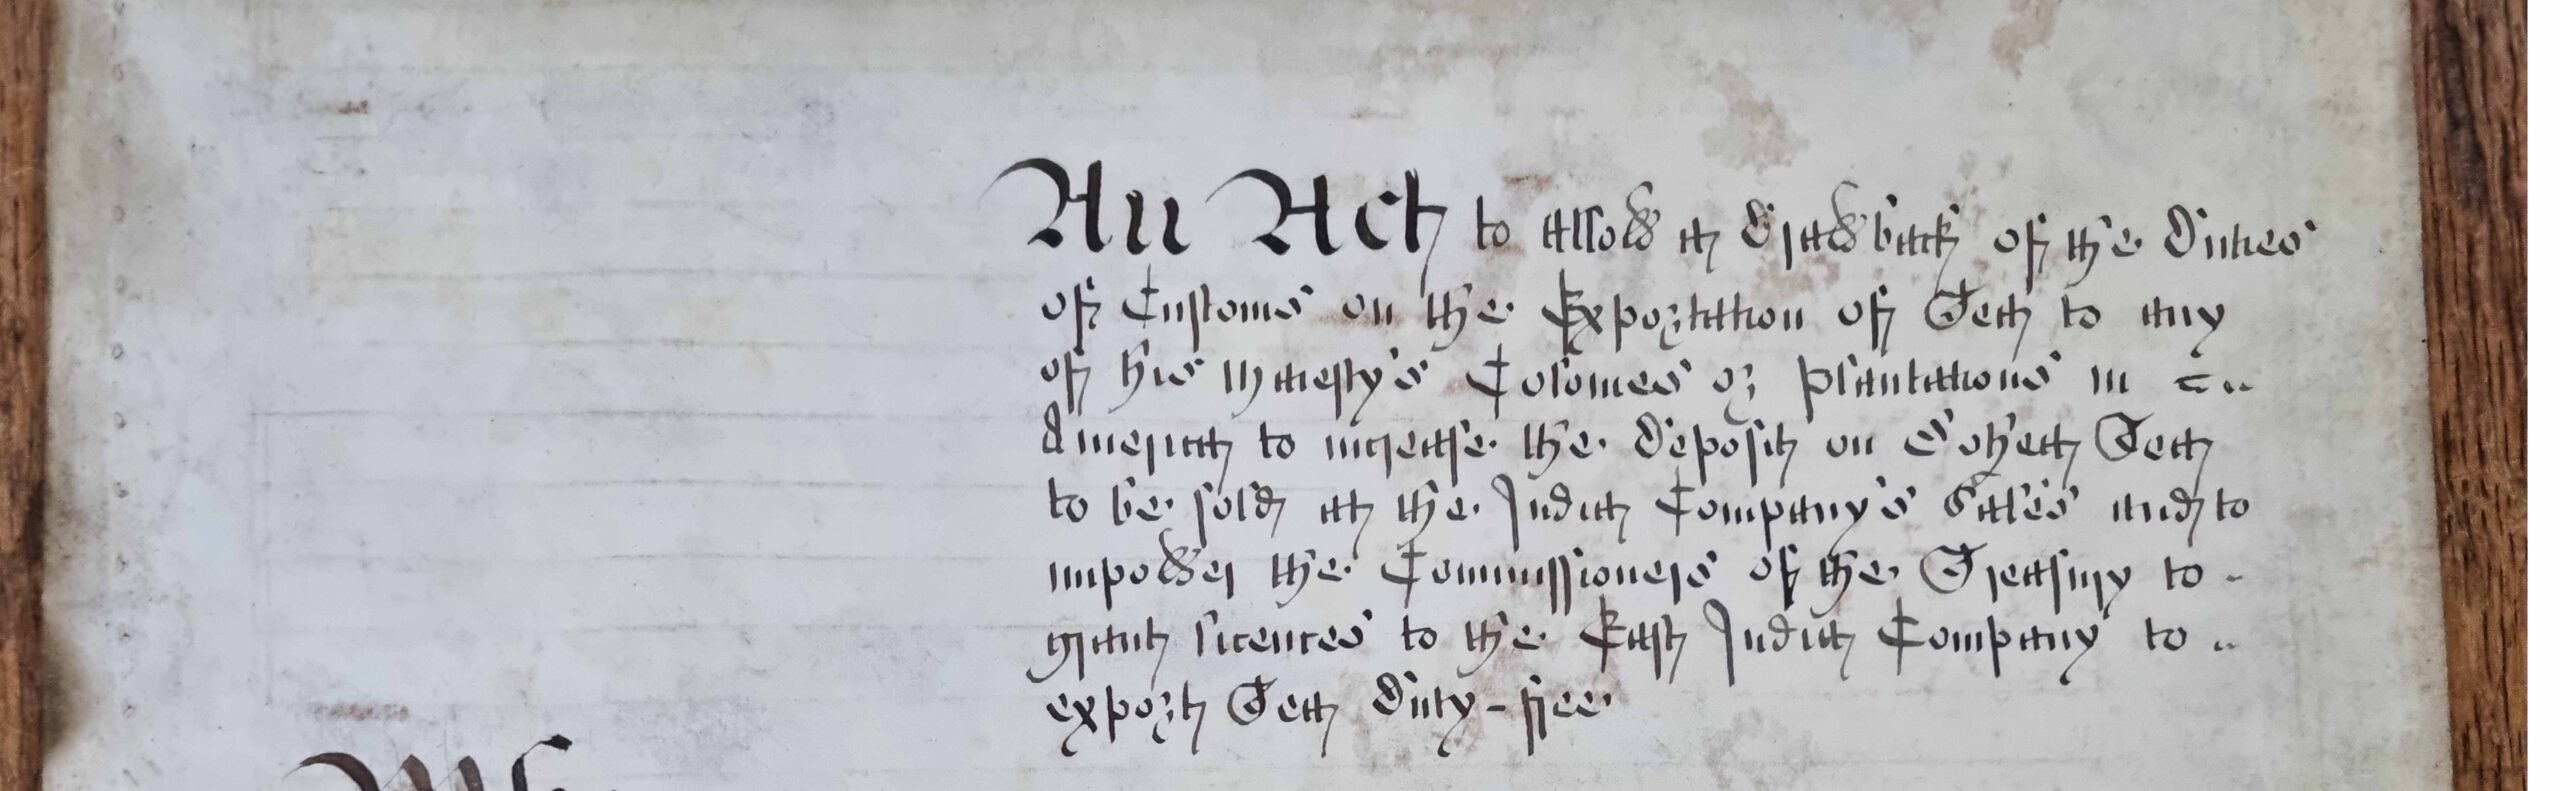 An Act to allow a Drawback of the Duties
of Customs on the Exportation of Tea to any
of his Majesty's Colonies or Plantations in
America to increase the Deposit on Bohea Tea
to be sold at the India Company's Sales and to
impower the Commissioners of the Treasury to
grant licences to the East India Company to
export Tea Duty-free